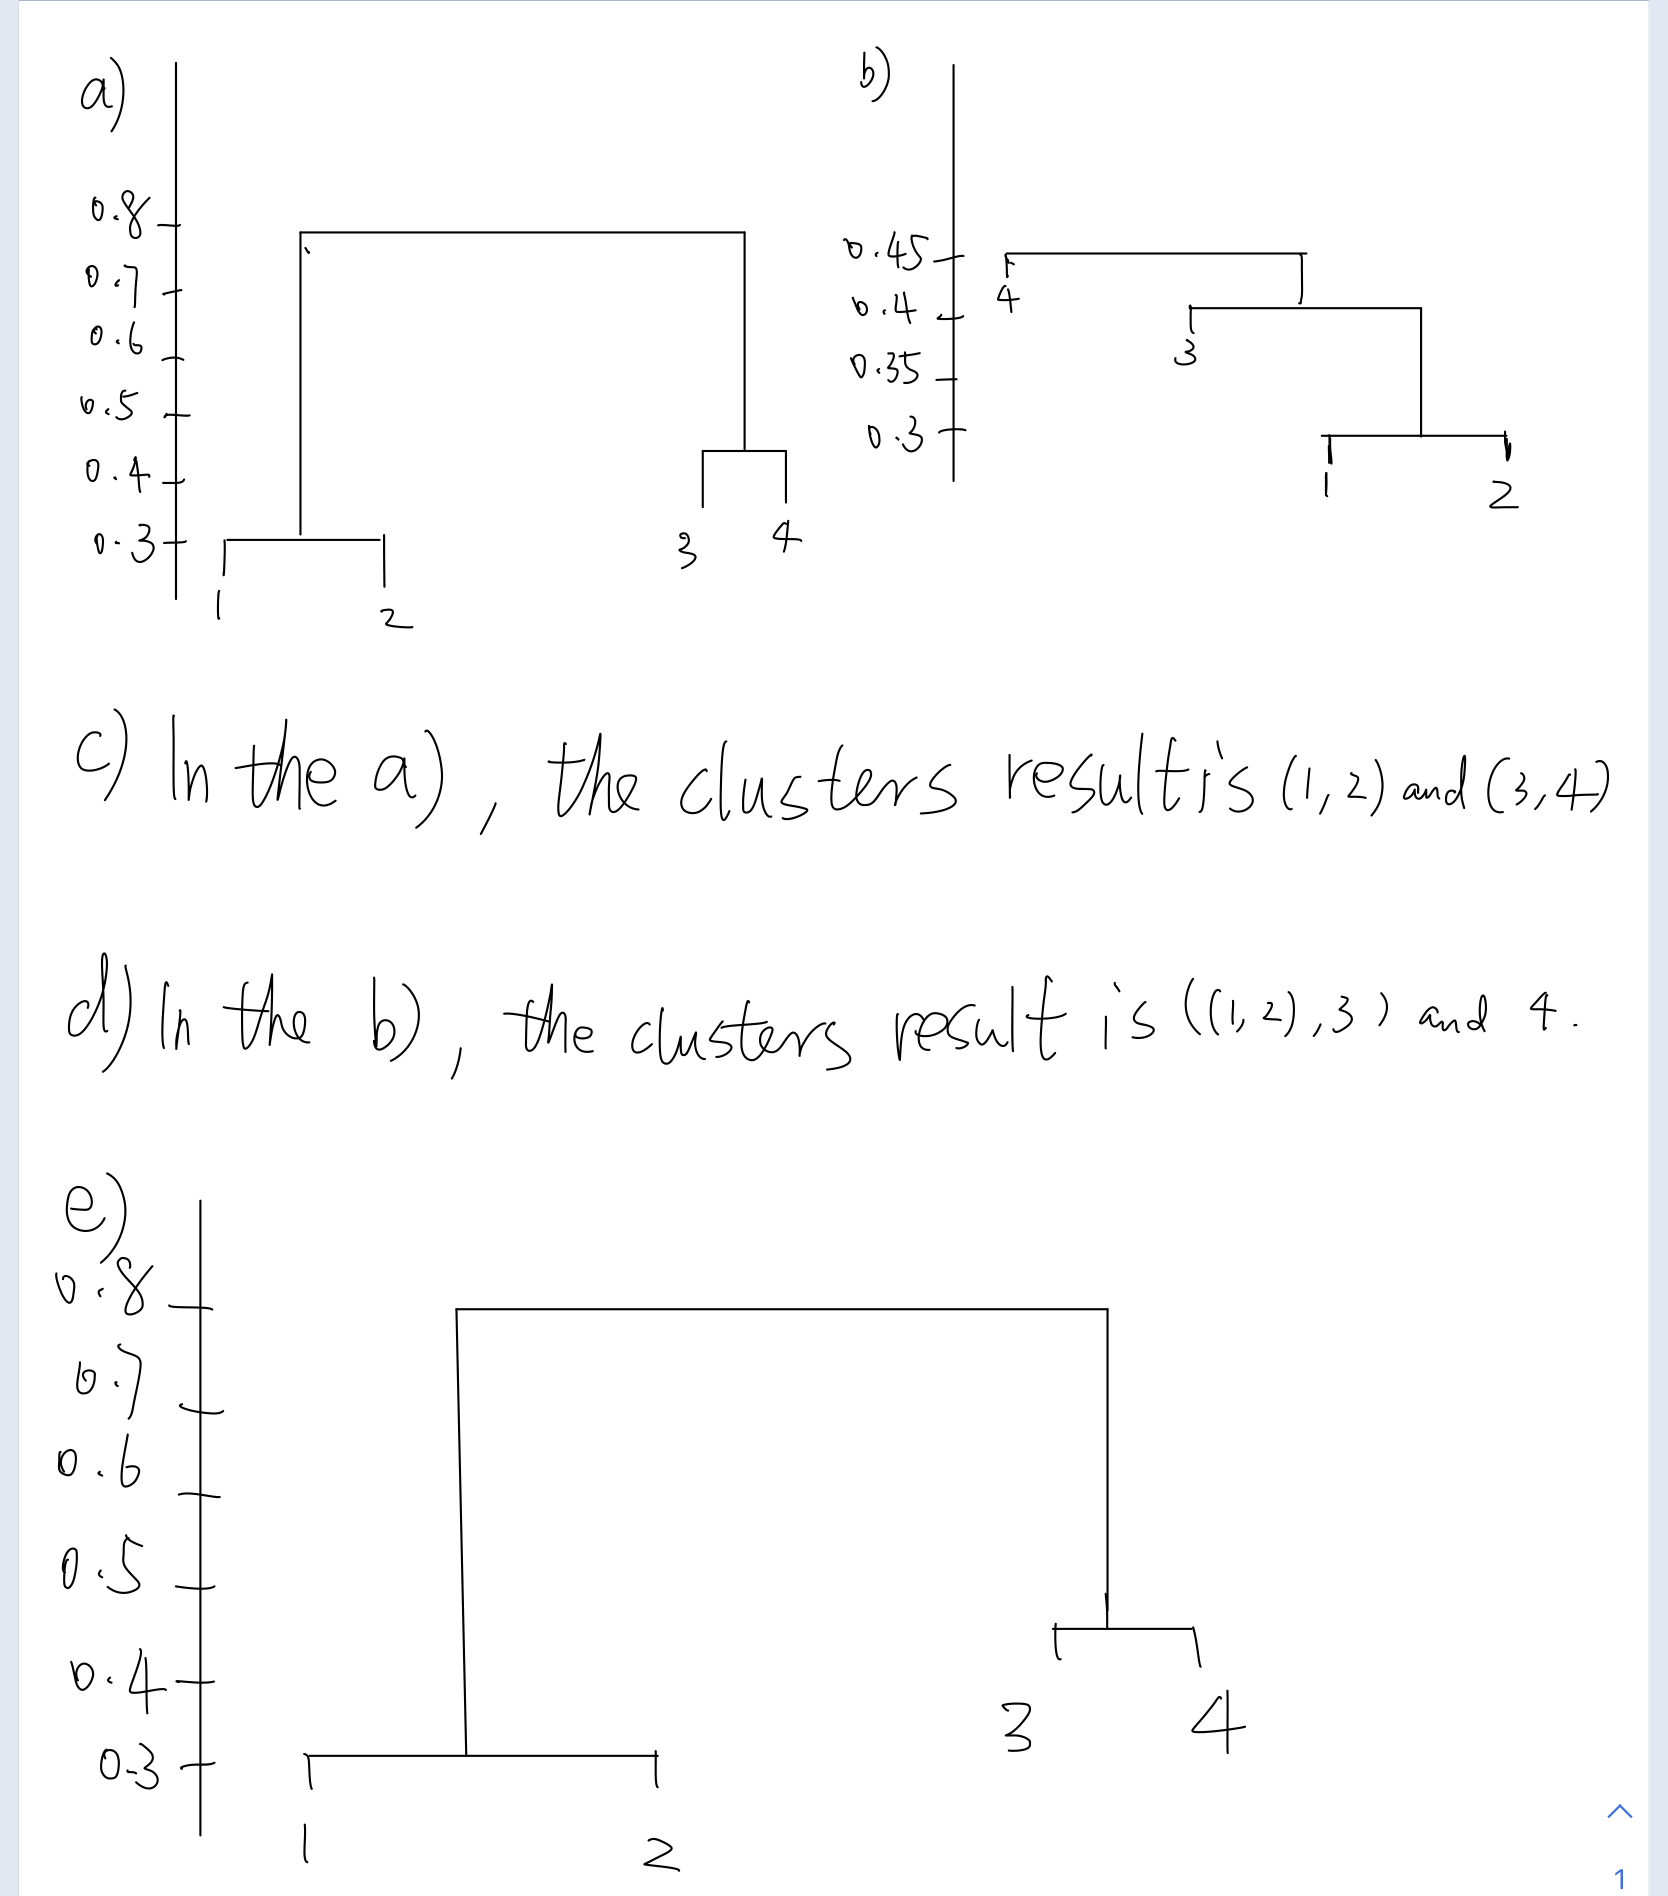 a)
0.8
0.7
0.6
0.5
0.4
0.3
1
2
3
4
b)
0.45
0.4
0.35
0.3
4
3
1
2
c) In the a), the clusters result is (1,2) and (3,4)
d) In the b), the clusters result is ((1,2),3) and 4.
e)
0.8
0.7
0.6
0.5
0.4
0.3
1
2
3
4
1